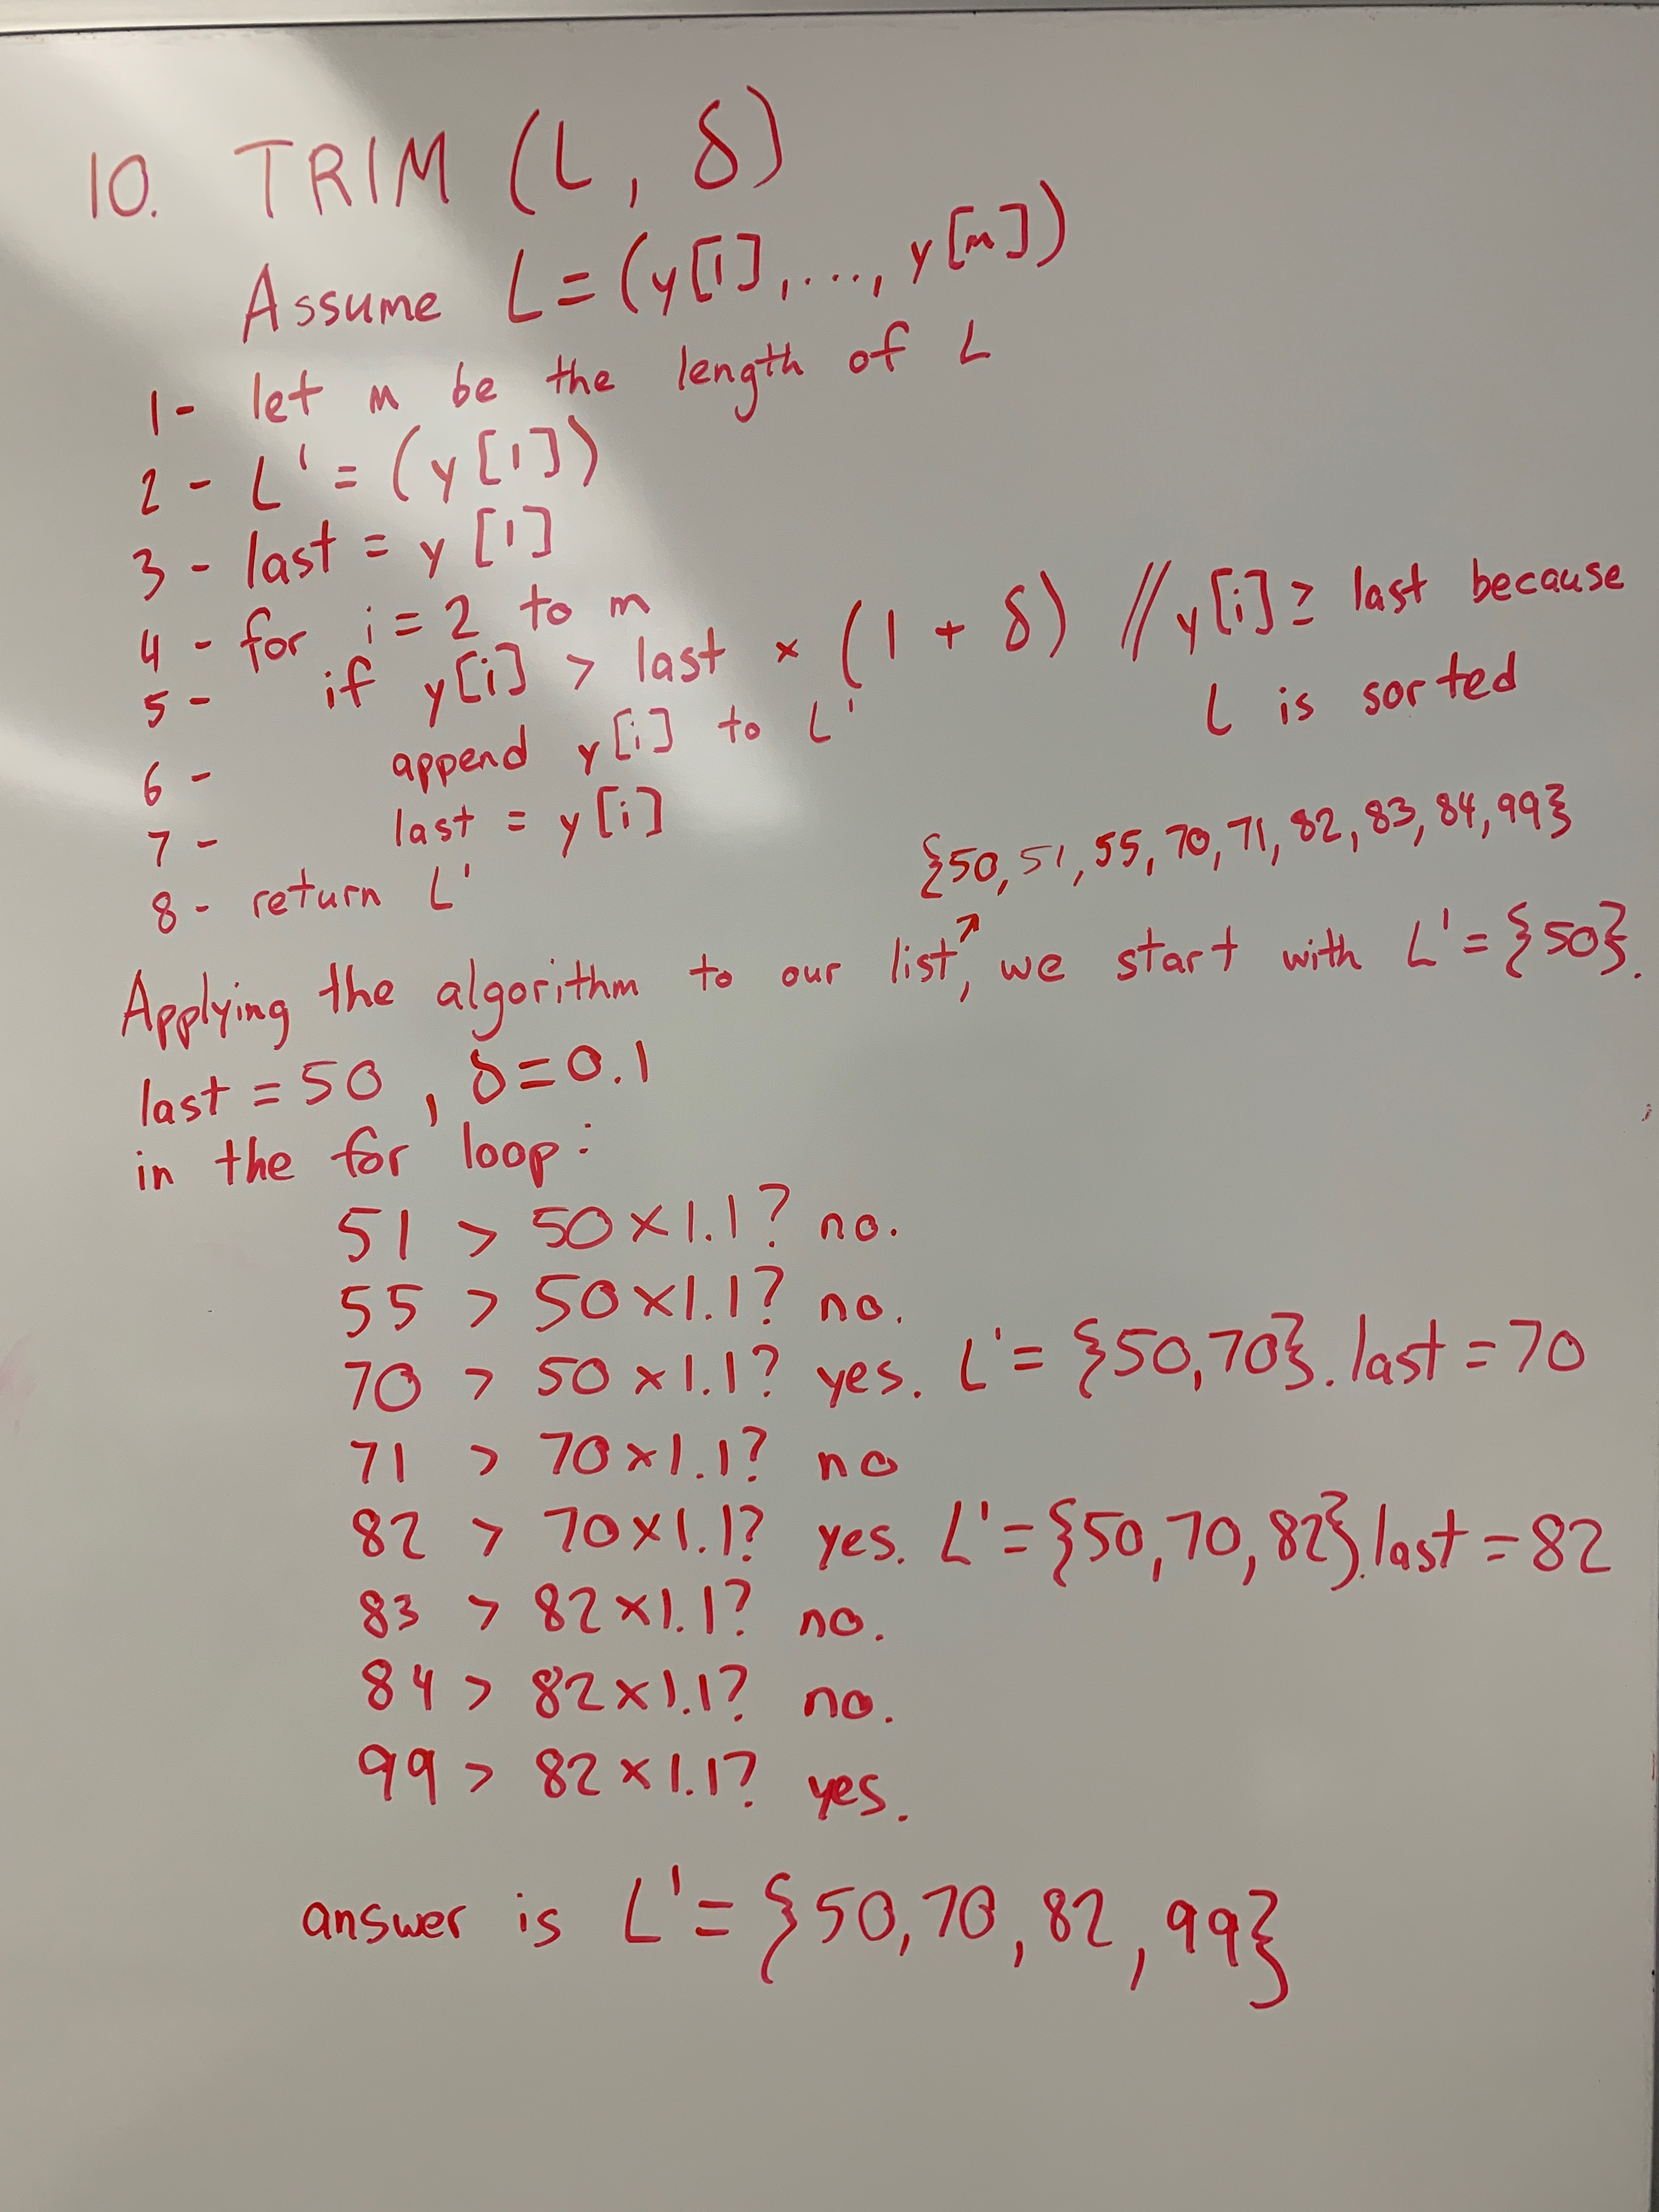 10. TRIM (L, δ)
Assume L = (y[1], ..., y[m])
1- let m be the length of L
2- L' = (y[1])
3- last = y[1]
4- for i = 2 to m
5- if y[i] > last × (1 + δ) // y[i] ≥ last because
L is sorted
6- append y[i] to L'
7- last = y[i]
8- return L'
{50, 51, 55, 70, 71, 82, 83, 84, 99}
Applying the algorithm to our list↗, we start with L' = {50}.
last = 50, δ = 0.1
in the for loop:
51 > 50 × 1.1? no.
55 > 50 × 1.1? no.
70 > 50 × 1.1? yes. L' = {50, 70}. last = 70
71 > 70 × 1.1? no
82 > 70 × 1.1? yes. L' = {50, 70, 82}. last = 82
83 > 82 × 1.1? no.
84 > 82 × 1.1? no.
99 > 82 × 1.1? yes.
answer is L' = {50, 70, 82, 99}